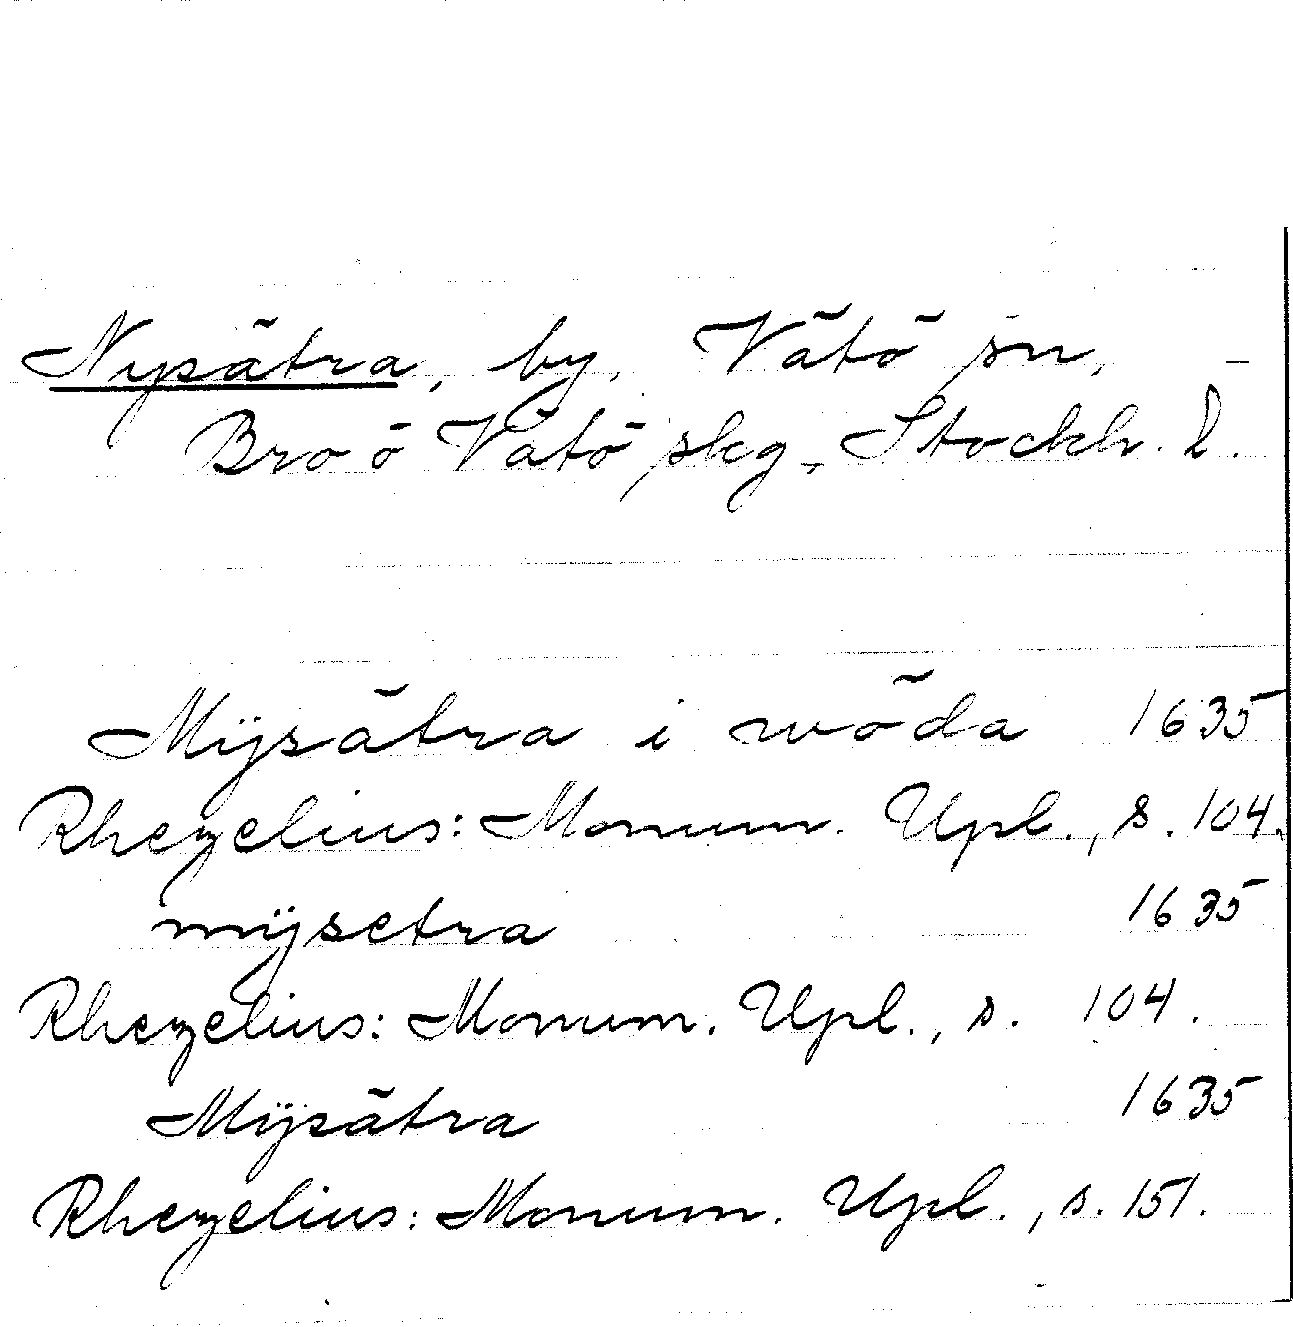 Nysätra, by, Vätö sn,
Bro o Vätö skg, Stockh. l.
Mÿsätra i wöda 1635
Rhezelius: Monum. Upl., s. 104.
mÿsetra 1635
Rhezelius: Monum. Upl., s. 104.
Mÿsätra 1635
Rhezelius: Monum. Upl., s. 151.